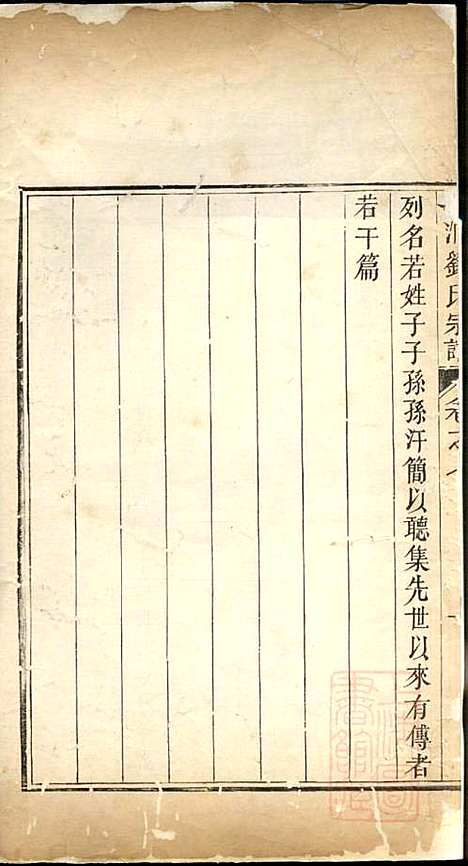 劉氏宗譜
列名若姓子子孫孫汗簡以聽集先世以來有傳者
若干篇